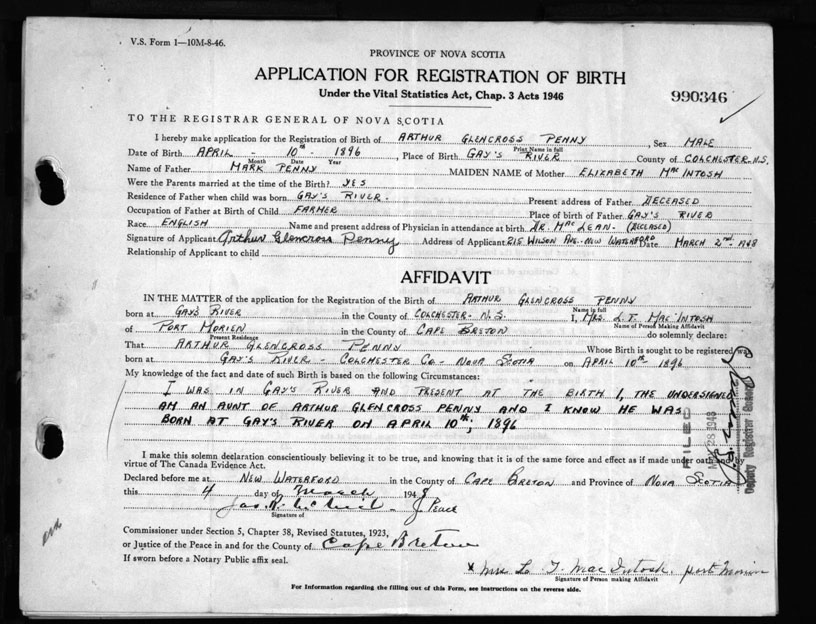 V.S. Form 1—10M-8-46.
PROVINCE OF NOVA SCOTIA
APPLICATION FOR REGISTRATION OF BIRTH
Under the Vital Statistics Act, Chap. 3 Acts 1946
990346
TO THE REGISTRAR GENERAL OF NOVA SCOTIA
I hereby make application for the Registration of Birth of ARTHUR GLENCROSS PENNY, Sex MALE
Print Name in full
Date of Birth APRIL - 10th - 1896, Place of Birth GAY'S RIVER County of COLCHESTER, N.S.
Month Date Year
Name of Father MARK PENNY MAIDEN NAME of Mother ELIZABETH MacINTOSH
Were the Parents married at the time of the Birth? YES
Residence of Father when child was born GAY'S RIVER. Present address of Father DECEASED
Occupation of Father at Birth of Child FARMER Place of birth of Father GAY'S RIVER
Race ENGLISH Name and present address of Physician in attendance at birth DR. MACLEAN. (DECEASED)
Signature of Applicant Arthur Glencross Penny Address of Applicant 215 WILSON AVE. NEW WATERFORD Date MARCH 2nd 1948
Relationship of Applicant to child
AFFIDAVIT
IN THE MATTER of the application for the Registration of the Birth of ARTHUR GLENCROSS PENNY
Name in full
born at GAYS RIVER in the County of COLCHESTER - N.S. I, MRS. L.T. MacINTOSH
Name of Person Making Affidavit
of PORT MORIEN in the County of CAPE BRETON do solemnly declare:
Present Residence
That ARTHUR GLENCROSS PENNY Whose Birth is sought to be registered was
born at GAY'S RIVER - COLCHESTER CO - NOVA SCOTIA on APRIL 10th 1896
My knowledge of the fact and date of such Birth is based on the following Circumstances:
I WAS IN GAY'S RIVER AND PRESENT AT THE BIRTH I, THE UNDERSIGNED
AM AN AUNT OF ARTHUR GLENCROSS PENNY AND I KNOW HE WAS
BORN AT GAY'S RIVER ON APRIL 10th, 1896
FILED
28 1948
Deputy Registrar General
I make this solemn declaration conscientiously believing it to be true, and knowing that it is of the same force and effect as if made under oath and by
virtue of The Canada Evidence Act.
Declared before me at NEW WATERFORD in the County of CAPE BRETON and Province of NOVA SCOTIA
this 4 day of March 1948
J. Peace
Signature of
Commissioner under Section 5, Chapter 38, Revised Statutes, 1923,
or Justice of the Peace in and for the County of Cape Breton
If sworn before a Notary Public affix seal.
x Mrs L. T. MacIntosh. port Morien
Signature of Person making Affidavit
For Information regarding the filling out of this Form, see Instructions on the reverse side.